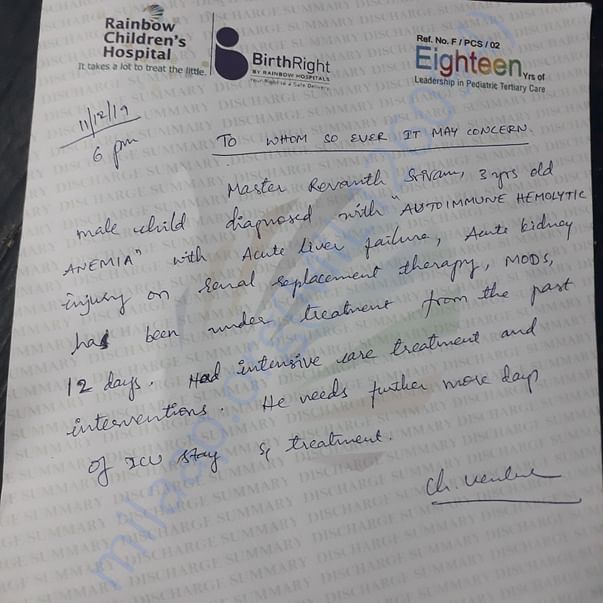 Rainbow
Children's
Hospital
It takes a lot to treat the little.
BirthRight
BY RAINBOW HOSPITALS
Your Right to a Safe Delivery
Ref. No. F / PCS / 02
Eighteen Yrs of
Leadership in Pediatric Tertiary Care
11/12/19
6 pm
TO WHOM SO EVER IT MAY CONCERN.
Master Revanth Srivam, 3 yrs old
male child diagnosed with "AUTOIMMUNE HEMOLYTIC
ANEMIA" with Acute Liver failure, Acute kidney
injury on renal replacement therapy, MODS,
has been under treatment from the past
12 days. Had intensive care treatment and
interventions. He needs further more days
of ICU stay & treatment.
Ch.
DISCHARGE SUMMARY